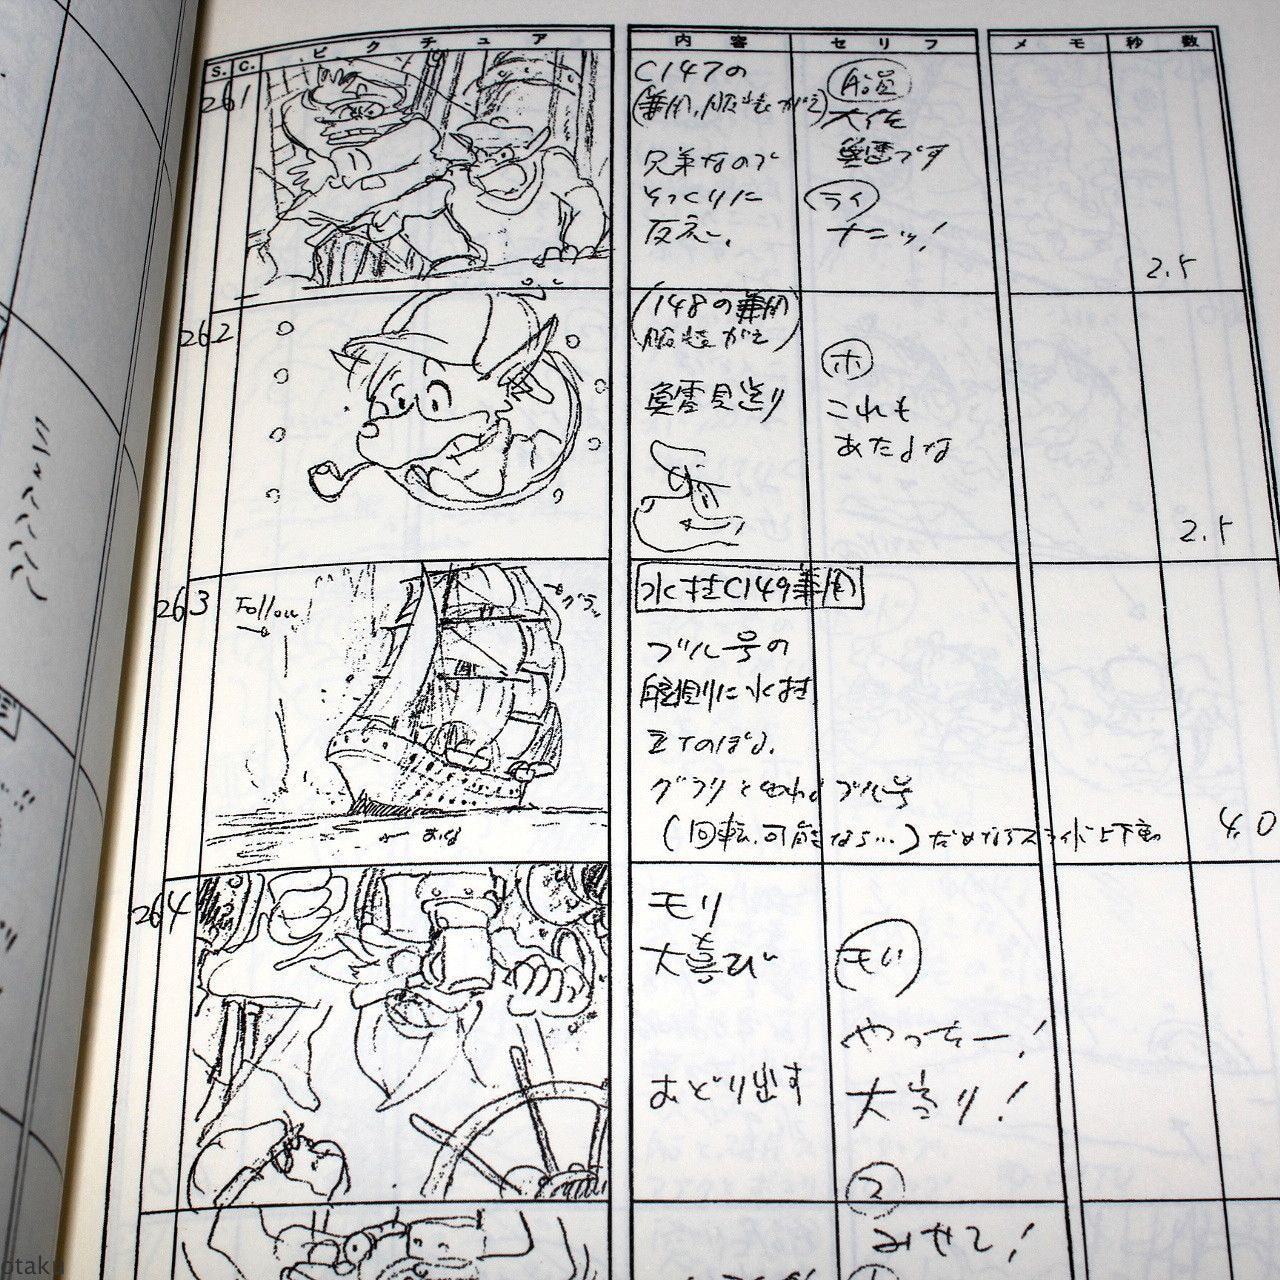 S. C. ピクチュア 内容 セリフ メモ 秒数
261
C147の
兄弟なので
そっくりに
反応。
船員
大佐
魚雷です
ライ
ナニッ!
2.5
262
148の兼用
服装がえ
魚雷見送り
ホ
これも
あたるな
2.5
263
Follow
グラッ
水柱C149兼用
ブル号の
舷側に水柱
立てのぼる。
グラリとゆれるブル号
(回転、可能なら…)だめならスライド上下動
4.0
264
モリ
大喜び
おどり出す
モリ
やったー!
大当り!
みせて!
otaku